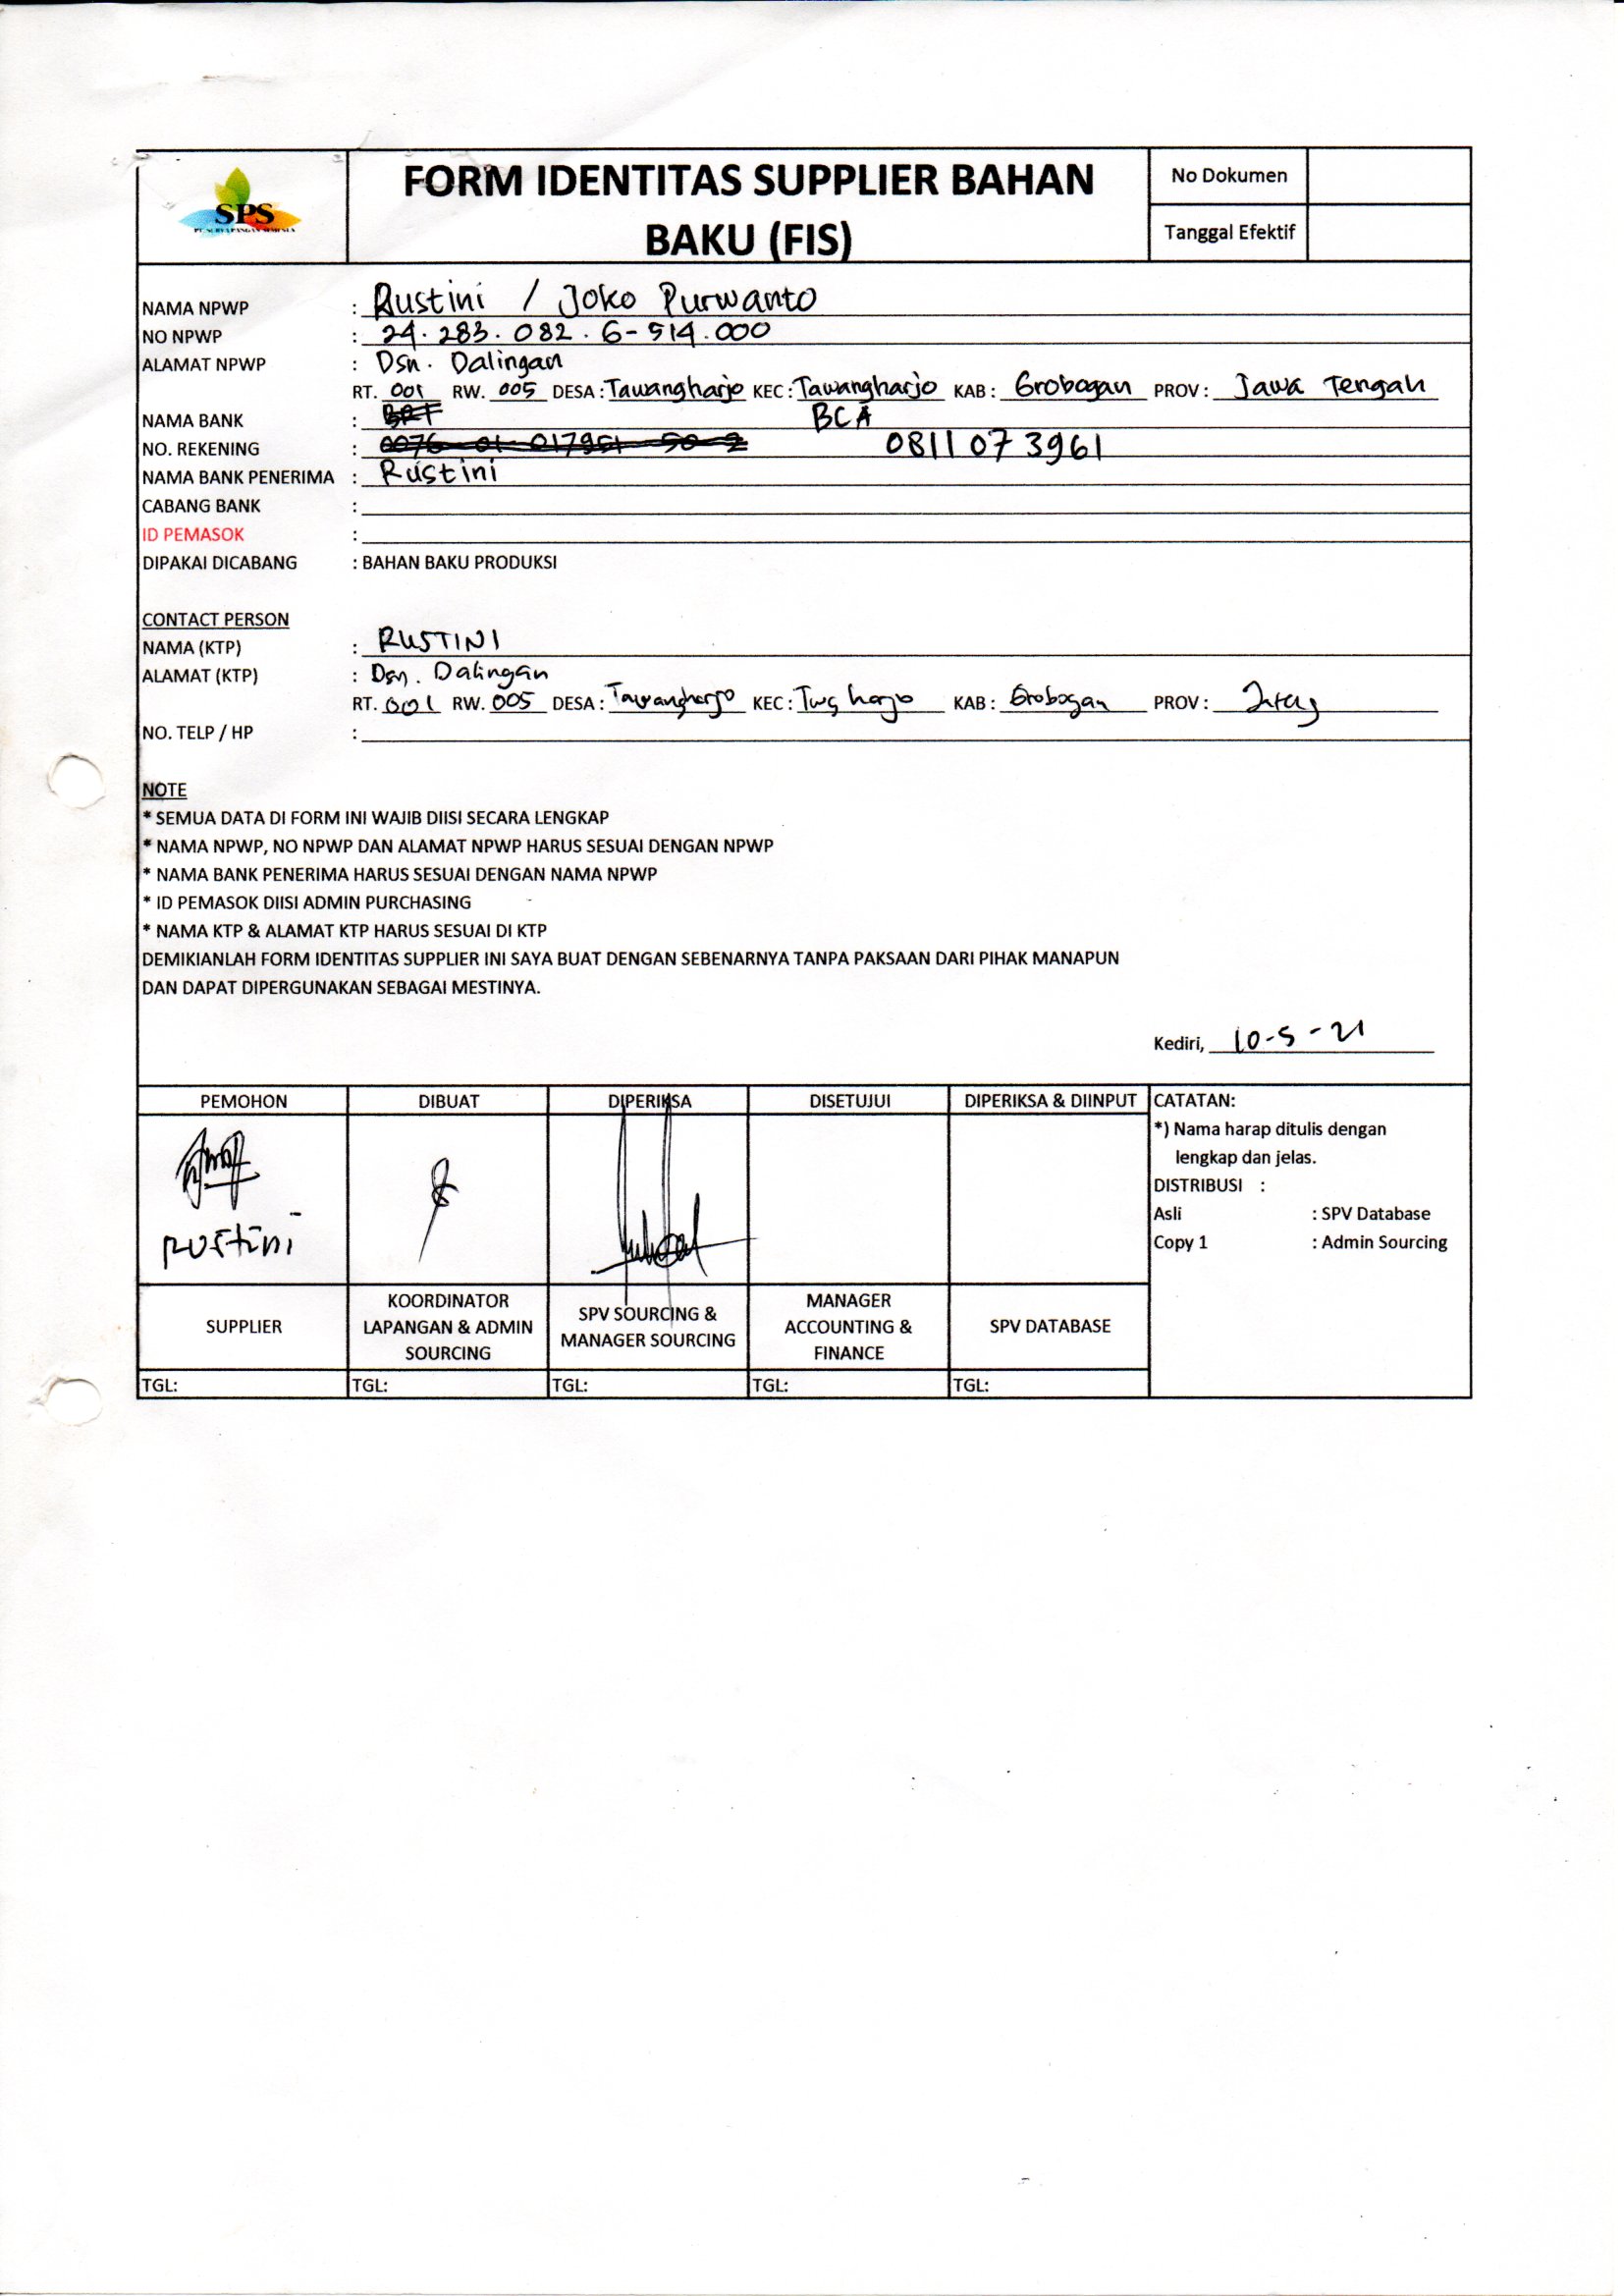 SPS
PT. SURYA PANGAN SEMESTA
FORM IDENTITAS SUPPLIER BAHAN
BAKU (FIS)
No Dokumen
Tanggal Efektif
NAMA NPWP : Rustini / Joko Purwanto
NO NPWP : 24.283.082.6-514.000
ALAMAT NPWP : Dsn. Dalingan
RT. 001 RW. 005 DESA : Tawangharjo KEC : Tawangharjo KAB : Grobogan PROV : Jawa Tengah
NAMA BANK : BRI BCA
NO. REKENING : 0076-01-017951-50-2 0811073961
NAMA BANK PENERIMA : Rustini
CABANG BANK :
ID PEMASOK :
DIPAKAI DICABANG : BAHAN BAKU PRODUKSI
CONTACT PERSON
NAMA (KTP) : RUSTINI
ALAMAT (KTP) : Dsn. Dalingan
RT. 001 RW. 005 DESA : Tawangharjo KEC : Twg harjo KAB : Grobogan PROV : Jateng
NO. TELP / HP :
NOTE
* SEMUA DATA DI FORM INI WAJIB DIISI SECARA LENGKAP
* NAMA NPWP, NO NPWP DAN ALAMAT NPWP HARUS SESUAI DENGAN NPWP
* NAMA BANK PENERIMA HARUS SESUAI DENGAN NAMA NPWP
* ID PEMASOK DIISI ADMIN PURCHASING
* NAMA KTP & ALAMAT KTP HARUS SESUAI DI KTP
DEMIKIANLAH FORM IDENTITAS SUPPLIER INI SAYA BUAT DENGAN SEBENARNYA TANPA PAKSAAN DARI PIHAK MANAPUN
DAN DAPAT DIPERGUNAKAN SEBAGAI MESTINYA.
Kediri, 10-5-21
PEMOHON DIBUAT DIPERIKSA DISETUJUI DIPERIKSA & DIINPUT
CATATAN:
*) Nama harap ditulis dengan
lengkap dan jelas.
DISTRIBUSI :
Asli : SPV Database
Copy 1 : Admin Sourcing
Rustini
SUPPLIER
KOORDINATOR
LAPANGAN & ADMIN
SOURCING
SPV SOURCING &
MANAGER SOURCING
MANAGER
ACCOUNTING &
FINANCE
SPV DATABASE
TGL: TGL: TGL: TGL: TGL: